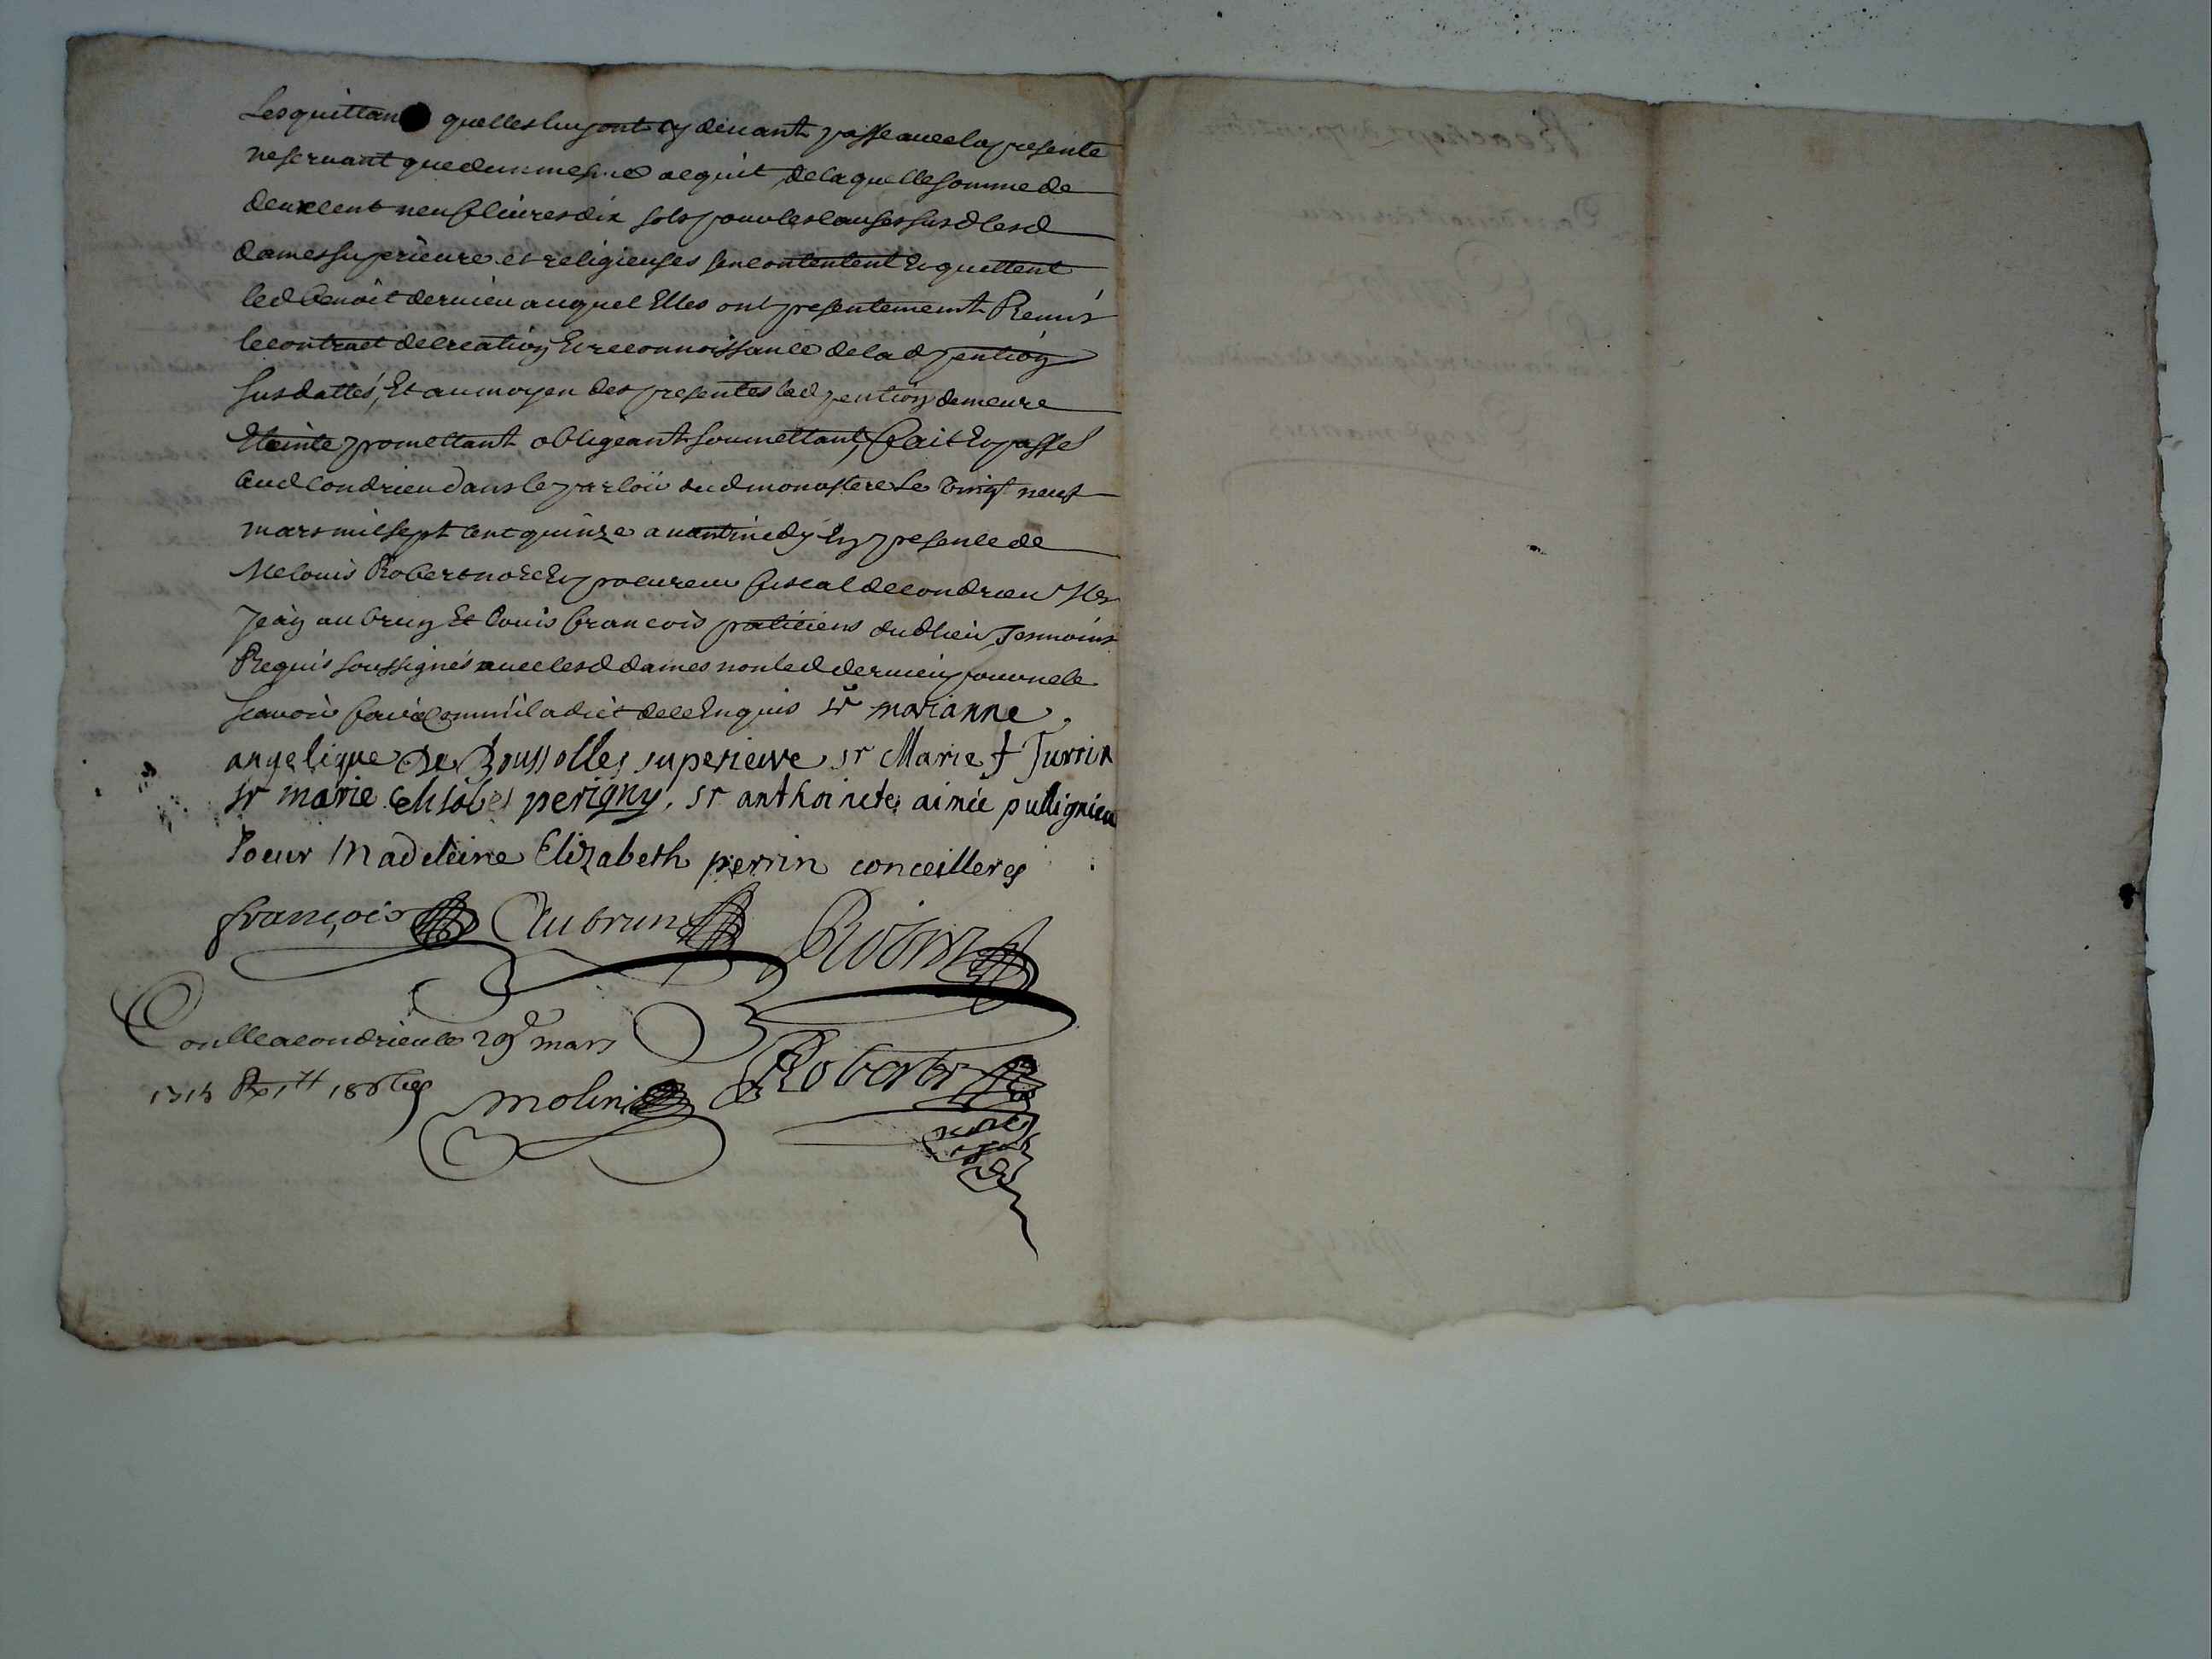 Les quittan quelles luy ont cy devant passé avec la presente
ne servant que dun mesme acquit de laquelle somme de
deux cent neuf livres dix sols pour les causes susd lesd
dames superieure et religieuses sen contentent Et quittent
led benoit dervieu auquel Elles ont presentement Remis
le contract de creation Et reconnoissance de lad pention
susdattés, Et au moyen des presentes lad pention demeure
Eteinte promettant obligeant soumettant, fait Et passé
aud Condrieu dans le parloir dud monastere Le vingt neuf
mars mil sept cent quinze avant midy En presence de
Me louis Robert no Et procureur fiscal de condrieu Mes
Jean aubrun Et Louis francois praticiens dud lieu Tesmoins
Requis soussignés avec lesd dames non led dervieu pour ne le
scavoir faire Comm'il a dict de ce Enquis sr marianne
angelique de Boussolles superieure sr Marie † Turrin
sr marie elisabet perigny, sr anthoinete aimée pullignieu
soeur Madeleine Elizabeth perrin conceilleres
françois Aubrun Robert
Conllé a condrieu le 29e mars
1715 Rx 1tt 18s
molin Robert